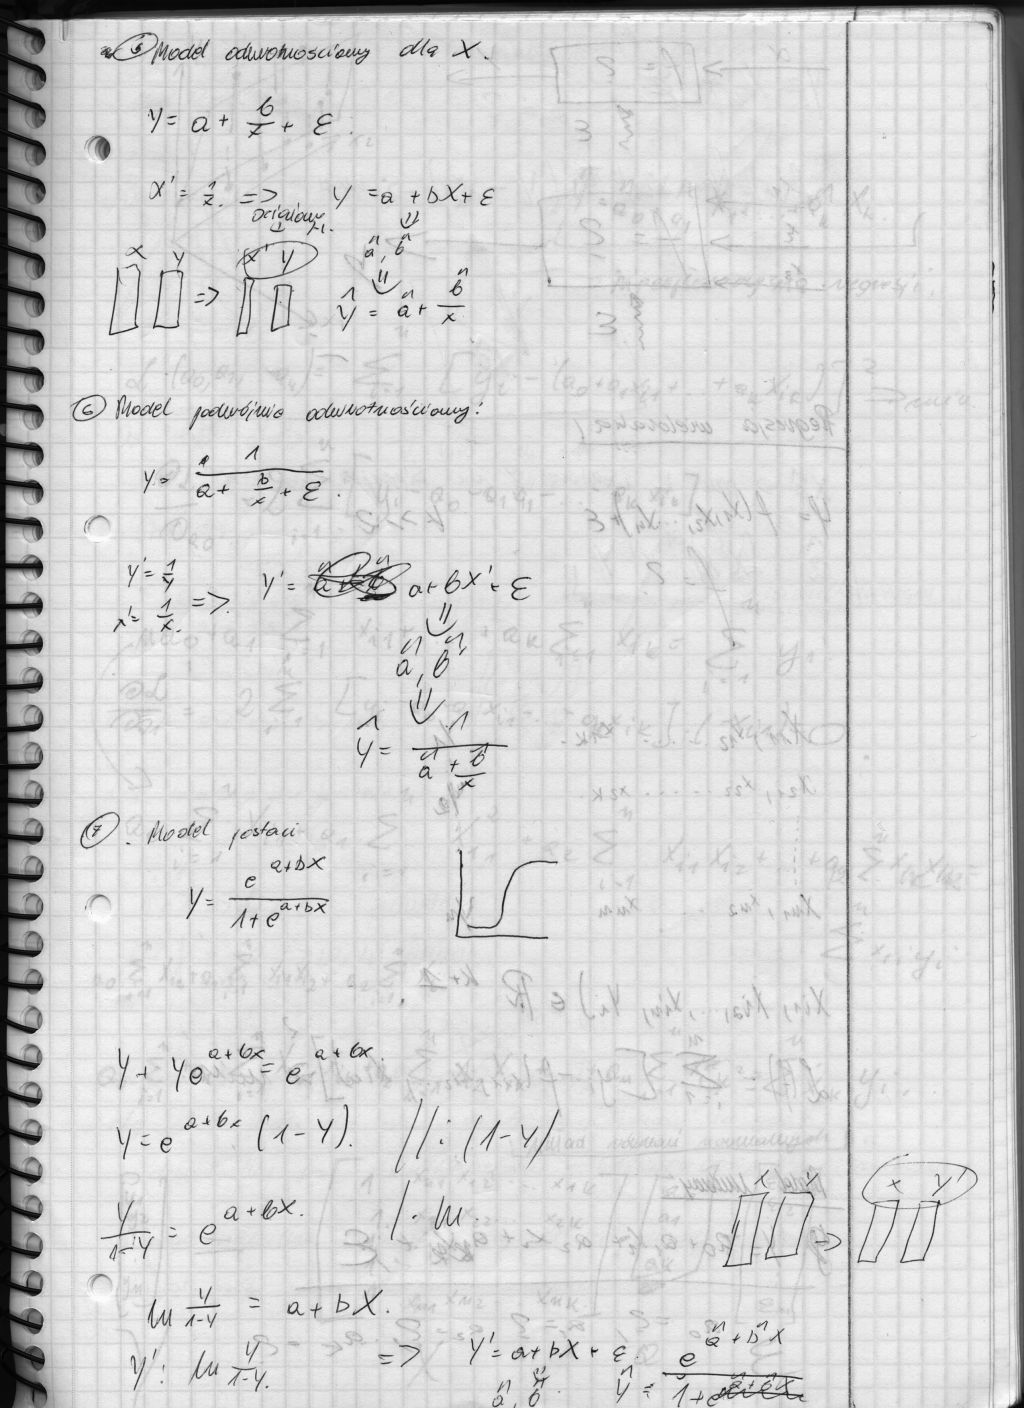 ⑤ Model odwrotnościowy dla X.
Y = a + b/x + ε.
x' = 1/x. => Y = a + bX + ε
â, b̂
X Y => x' Y
Ŷ = â + b̂/x
⑥ Model podwójnie odwrotnościowy:
Y = 1/(a + b/x + ε).
Y' = 1/Y
x' = 1/x. => Y' = a + bX' + ε
â, b̂
Ŷ = 1/(â + b̂/x)
⑦. Model postaci
Y = e^(a+bx)/(1+e^(a+bx))
Y + Ye^(a+bx) = e^(a+bx).
Y = e^(a+bx) (1-Y). //: (1-Y)
Y/(1-Y) = e^(a+bX). /· ln.
X Y => X Y'
ln Y/(1-Y) = a + bX.
Y': ln Y/(1-Y). => Y' = a + bX + ε.
â, b̂. Ŷ = e^(â+b̂X)/(1+e^(â+b̂X))